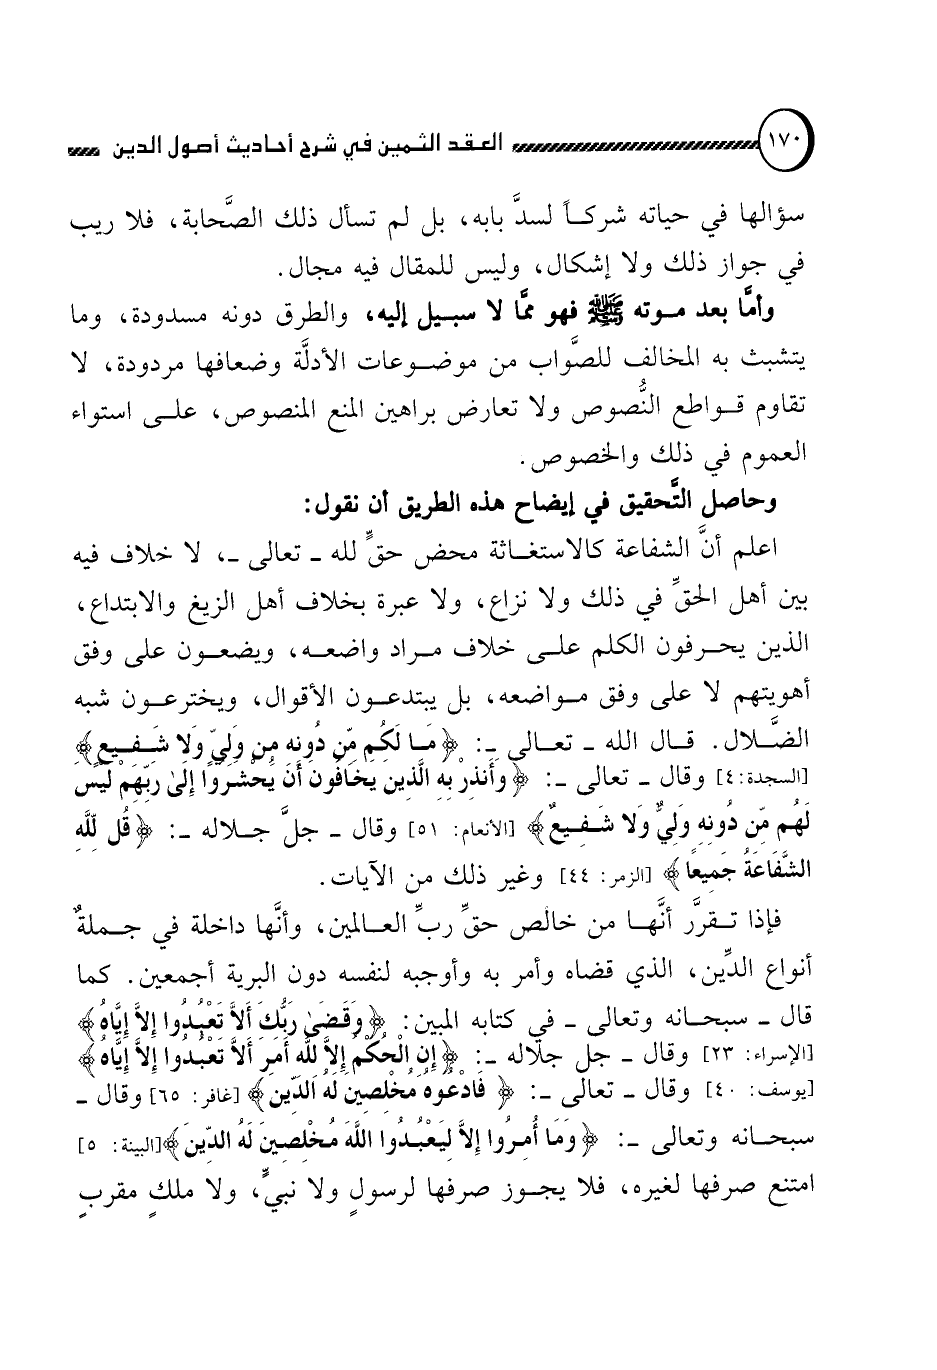 ١٧٠ العقد الثمين في شرح أحاديث أصول الدين
سؤالها في حياته شركاً لسدَّ بابه، بل لم تسأل ذلك الصَّحابة، فلا ريب
في جواز ذلك ولا إشكال، وليس للمقال فيه مجال.
وأمَّا بعد موته ﷺ فهو ممَّا لا سبيل إليه، والطرق دونه مسدودة، وما
يتشبث به المخالف للصَّواب من موضوعات الأدلَّة وضعافها مردودة، لا
تقاوم قواطع النُّصوص ولا تعارض براهين المنع المنصوص، على استواء
العموم في ذلك والخصوص.
وحاصل التَّحقيق في إيضاح هذه الطريق أن نقول:
اعلم أنَّ الشفاعة كالاستغاثة محض حقٍّ لله ـ تعالى ـ، لا خلاف فيه
بين أهل الحقِّ في ذلك ولا نزاع، ولا عبرة بخلاف أهل الزيغ والابتداع،
الذين يحرفون الكلم على خلاف مراد واضعه، ويضعون على وفق
أهويتهم لا على وفق مواضعه، بل يبتدعون الأقوال، ويخترعون شبه
الضَّلال. قال الله ـ تعالى ـ: ﴿مَا لَكُم مِّن دُونِهِ مِن وَلِيٍّ وَلَا شَفِيعٍ﴾
[السجدة:٤] وقال ـ تعالى ـ: ﴿وَأَنذِرْ بِهِ الَّذِينَ يَخَافُونَ أَن يُحْشَرُوا إِلَىٰ رَبِّهِمْ لَيْسَ
لَهُم مِّن دُونِهِ وَلِيٌّ وَلَا شَفِيعٌ﴾ [الأنعام: ٥١] وقال ـ جلَّ جلاله ـ: ﴿قُل لِّلَّهِ
الشَّفَاعَةُ جَمِيعاً﴾ [الزمر: ٤٤] وغير ذلك من الآيات.
فإذا تقرَّر أنَّها من خالص حقِّ ربِّ العالمين، وأنَّها داخلة في جملةٌ
أنواع الدِّين، الذي قضاه وأمر به وأوجبه لنفسه دون البرية أجمعين. كما
قال ـ سبحانه وتعالى ـ في كتابه المبين: ﴿وَقَضَىٰ رَبُّكَ أَلاَّ تَعْبُدُوا إِلاَّ إِيَّاهُ﴾
[الإسراء: ٢٣] وقال ـ جل جلاله ـ: ﴿إِنِ الْحُكْمُ إِلاَّ لِلَّهِ أَمَرَ أَلاَّ تَعْبُدُوا إِلاَّ إِيَّاهُ﴾
[يوسف: ٤٠] وقال ـ تعالى ـ: ﴿فَادْعُوهُ مُخْلِصِينَ لَهُ الدِّينَ﴾ [غافر: ٦٥] وقال ـ
سبحانه وتعالى ـ: ﴿وَمَا أُمِرُوا إِلاَّ لِيَعْبُدُوا اللَّهَ مُخْلِصِينَ لَهُ الدِّينَ﴾[البينة: ٥]
امتنع صرفها لغيره، فلا يجوز صرفها لرسولٍ ولا نبيٍّ، ولا ملكٍ مقربٍ